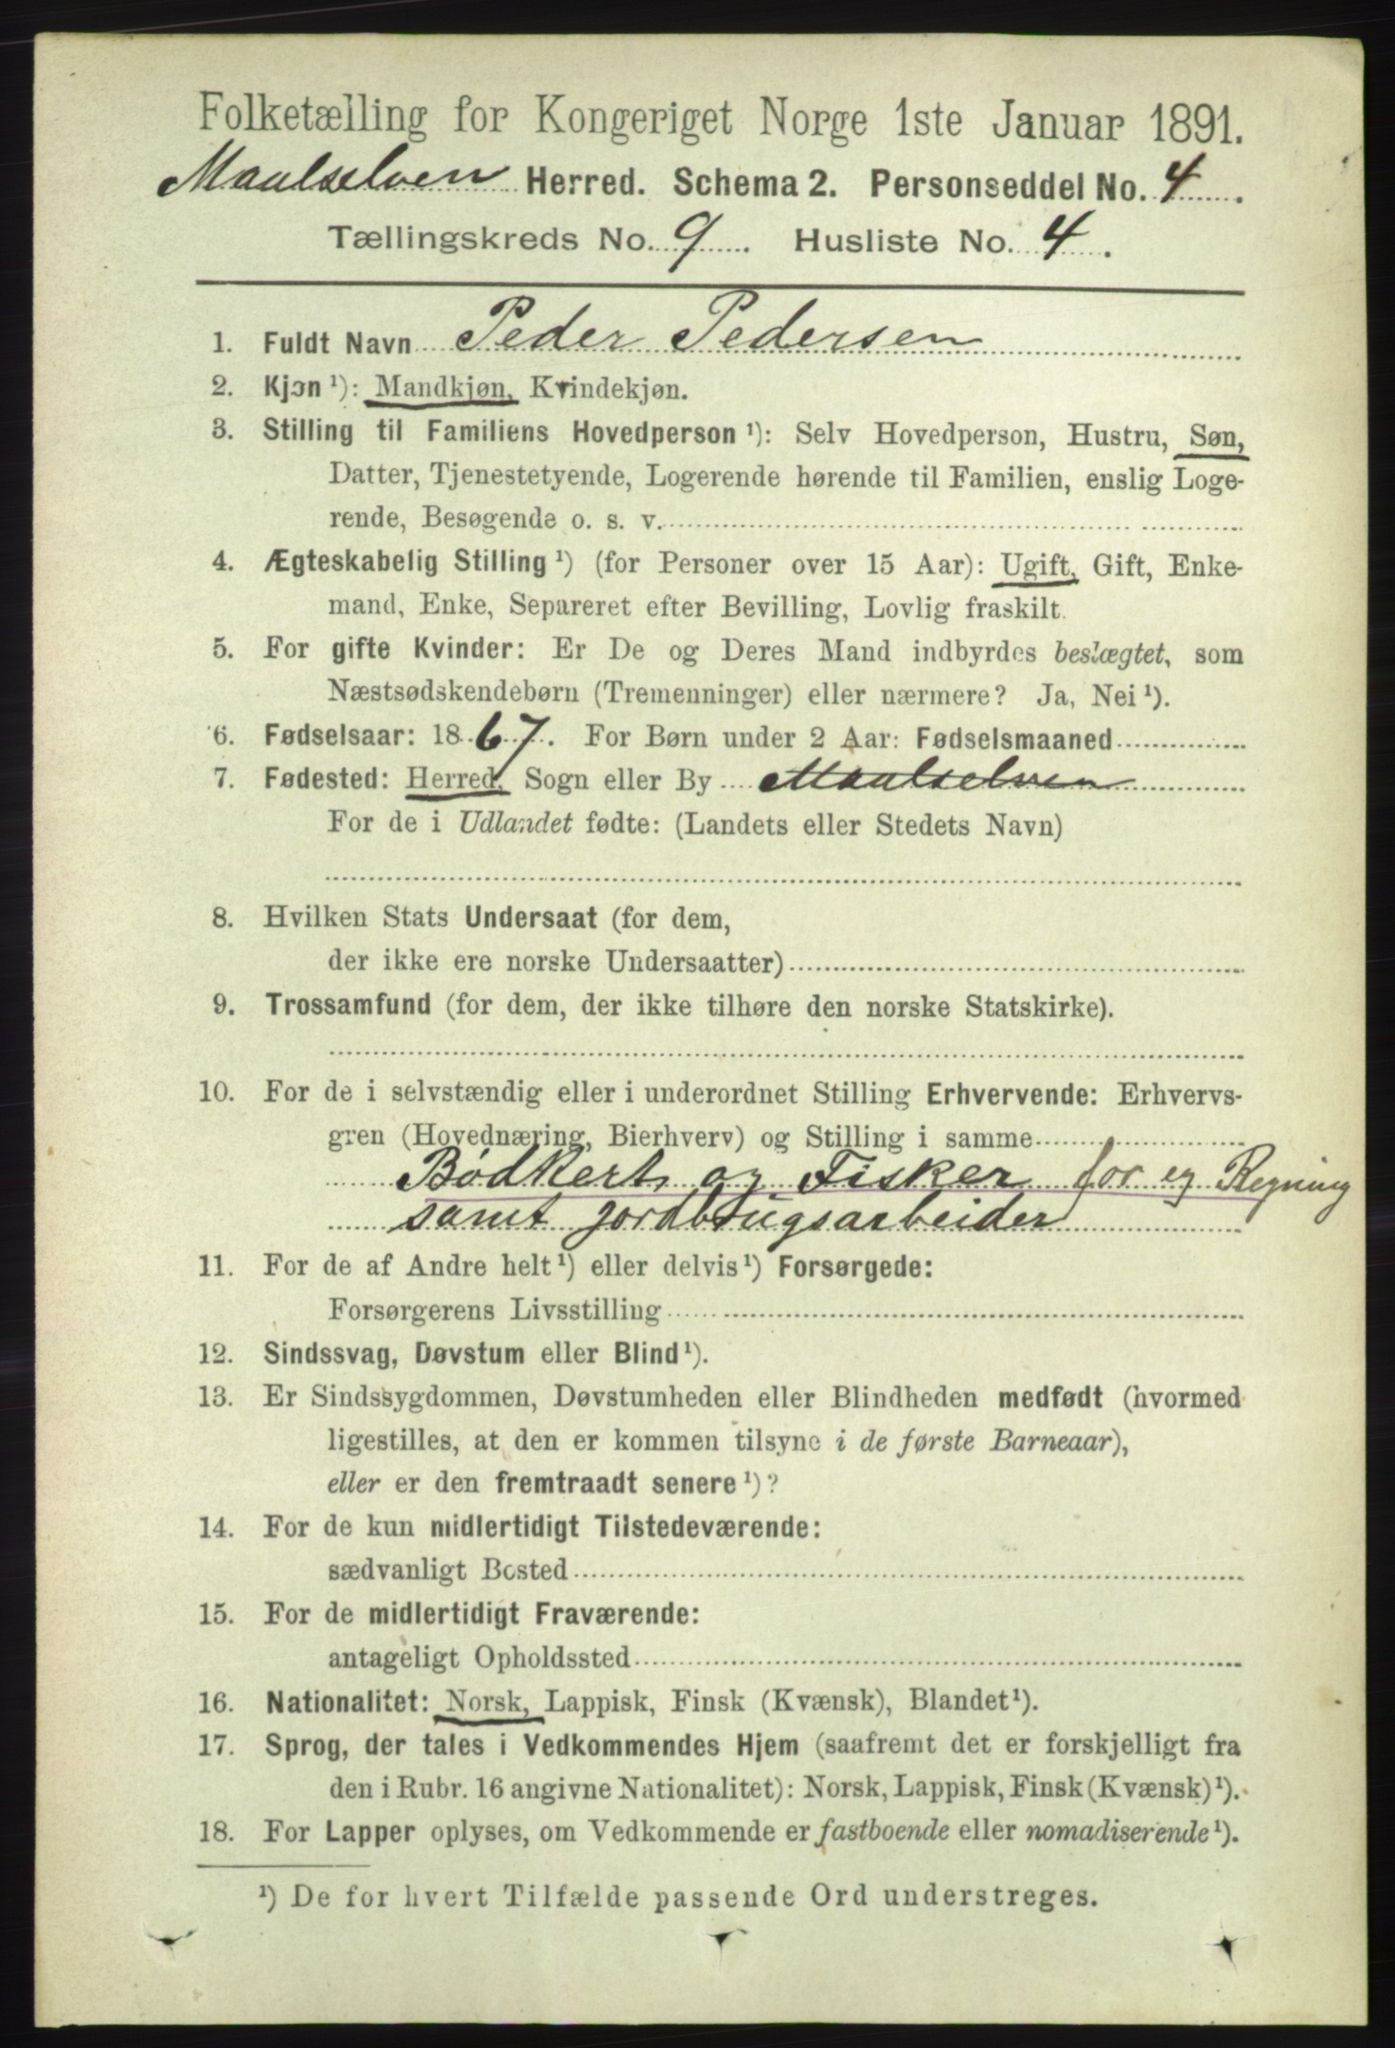 Folketælling for Kongeriget Norge 1ste Januar 1891.
Maalselven Herred. Schema 2. Personseddel No. 4.
Tællingskreds No. 9. Husliste No. 4.
1. Fuldt Navn Peder Pedersen
2. Kjøn¹): Mandkjøn, Kvindekjøn.
3. Stilling til Familiens Hovedperson¹): Selv Hovedperson, Hustru, Søn,
Datter, Tjenestetyende, Logerende hørende til Familien, enslig Loge-
rende, Besøgende o. s. v.
4. Ægteskabelig Stilling¹) (for Personer over 15 Aar): Ugift, Gift, Enke-
mand, Enke, Separeret efter Bevilling, Lovlig fraskilt.
5. For gifte Kvinder: Er De og Deres Mand indbyrdes beslægtet, som
Næstsødskendebørn (Tremenninger) eller nærmere? Ja, Nei¹).
6. Fødselsaar: 1867. For Børn under 2 Aar: Fødselsmaaned
7. Fødested: Herred, Sogn eller By Maalselven
For de i Udlandet fødte: (Landets eller Stedets Navn)
8. Hvilken Stats Undersaat (for dem,
der ikke ere norske Undersaatter)
9. Trossamfund (for dem, der ikke tilhøre den norske Statskirke).
10. For de i selvstændig eller i underordnet Stilling Erhvervende: Erhvervs-
gren (Hovednæring, Bierhverv) og Stilling i samme
Bødkert og Fisker for eg Regning
samt jordbrugsarbeider
11. For de af Andre helt¹) eller delvis¹) Forsørgede:
Forsørgerens Livsstilling
12. Sindssvag, Døvstum eller Blind¹).
13. Er Sindssygdommen, Døvstumheden eller Blindheden medfødt (hvormed
ligestilles, at den er kommen tilsyne i de første Barneaar),
eller er den fremtraadt senere¹)?
14. For de kun midlertidigt Tilstedeværende:
sædvanligt Bosted
15. For de midlertidigt Fraværende:
antageligt Opholdssted
16. Nationalitet: Norsk, Lappisk, Finsk (Kvænsk), Blandet¹).
17. Sprog, der tales i Vedkommendes Hjem (saafremt det er forskjelligt fra
den i Rubr. 16 angivne Nationalitet): Norsk, Lappisk, Finsk (Kvænsk)¹).
18. For Lapper oplyses, om Vedkommende er fastboende eller nomadiserende¹).
¹) De for hvert Tilfælde passende Ord understreges.